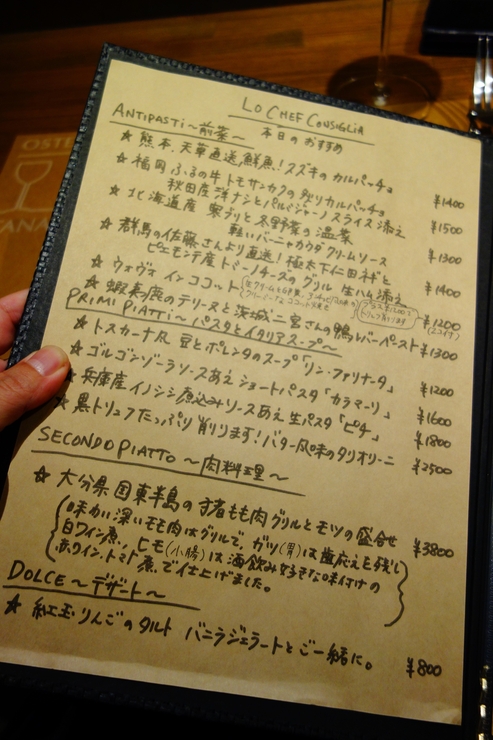 LO CHEF CONSIGLIA
本日のおすすめ
ANTIPASTI～前菜～
★ 熊本、天草直送鮮魚!スズキのカルパッチョ ¥1400
★ 福岡 ふるの牛トモサンカクの炙りカルパッチョ
秋田産洋ナシとパルミジャーノスライス添え ¥1500
★ 北海道産 寒ブリと冬野菜の温菜
軽いバーニャカウダクリームソース ¥1300
★ 群馬の佐藤さんより直送!極太下仁田ネギと
ピエモンテ産トミーノチーズのグリル 生ハム添え ¥1400
★ ウォヴォ インココット ¥1200
★ 蝦夷鹿のテリーヌと茨城二宮さんの鴨レバーペースト ¥1300
PRIMI PIATTI～パスタとイタリアスープ～
★ トスカーナ風 豆とポレンタのスープ「リン・ファリナータ」 ¥1200
★ ゴルゴンゾーラソースあえショートパスタ「カラマーリ」 ¥1600
★ 兵庫産イノシシ煮込みソースあえ生パスタ「ピチ」 ¥1800
★ 黒トリュフたっぷり削ります!バター風味のタリオリーニ ¥2500
SECONDO PIATTO～肉料理～
★ 大分県国東半島の猪もも肉グリルとモツの盛合せ ¥3800
味わい深いモモ肉はグリルで、ガツ(胃)は歯応えを残し
白ワイン煮、ヒモ(小腸)は酒飲み好きな味付けの
赤ワイン、トマト煮で仕上げました。
DOLCE～デザート～
★ 紅玉りんごのタルト バニラジェラートとご一緒に。 ¥800